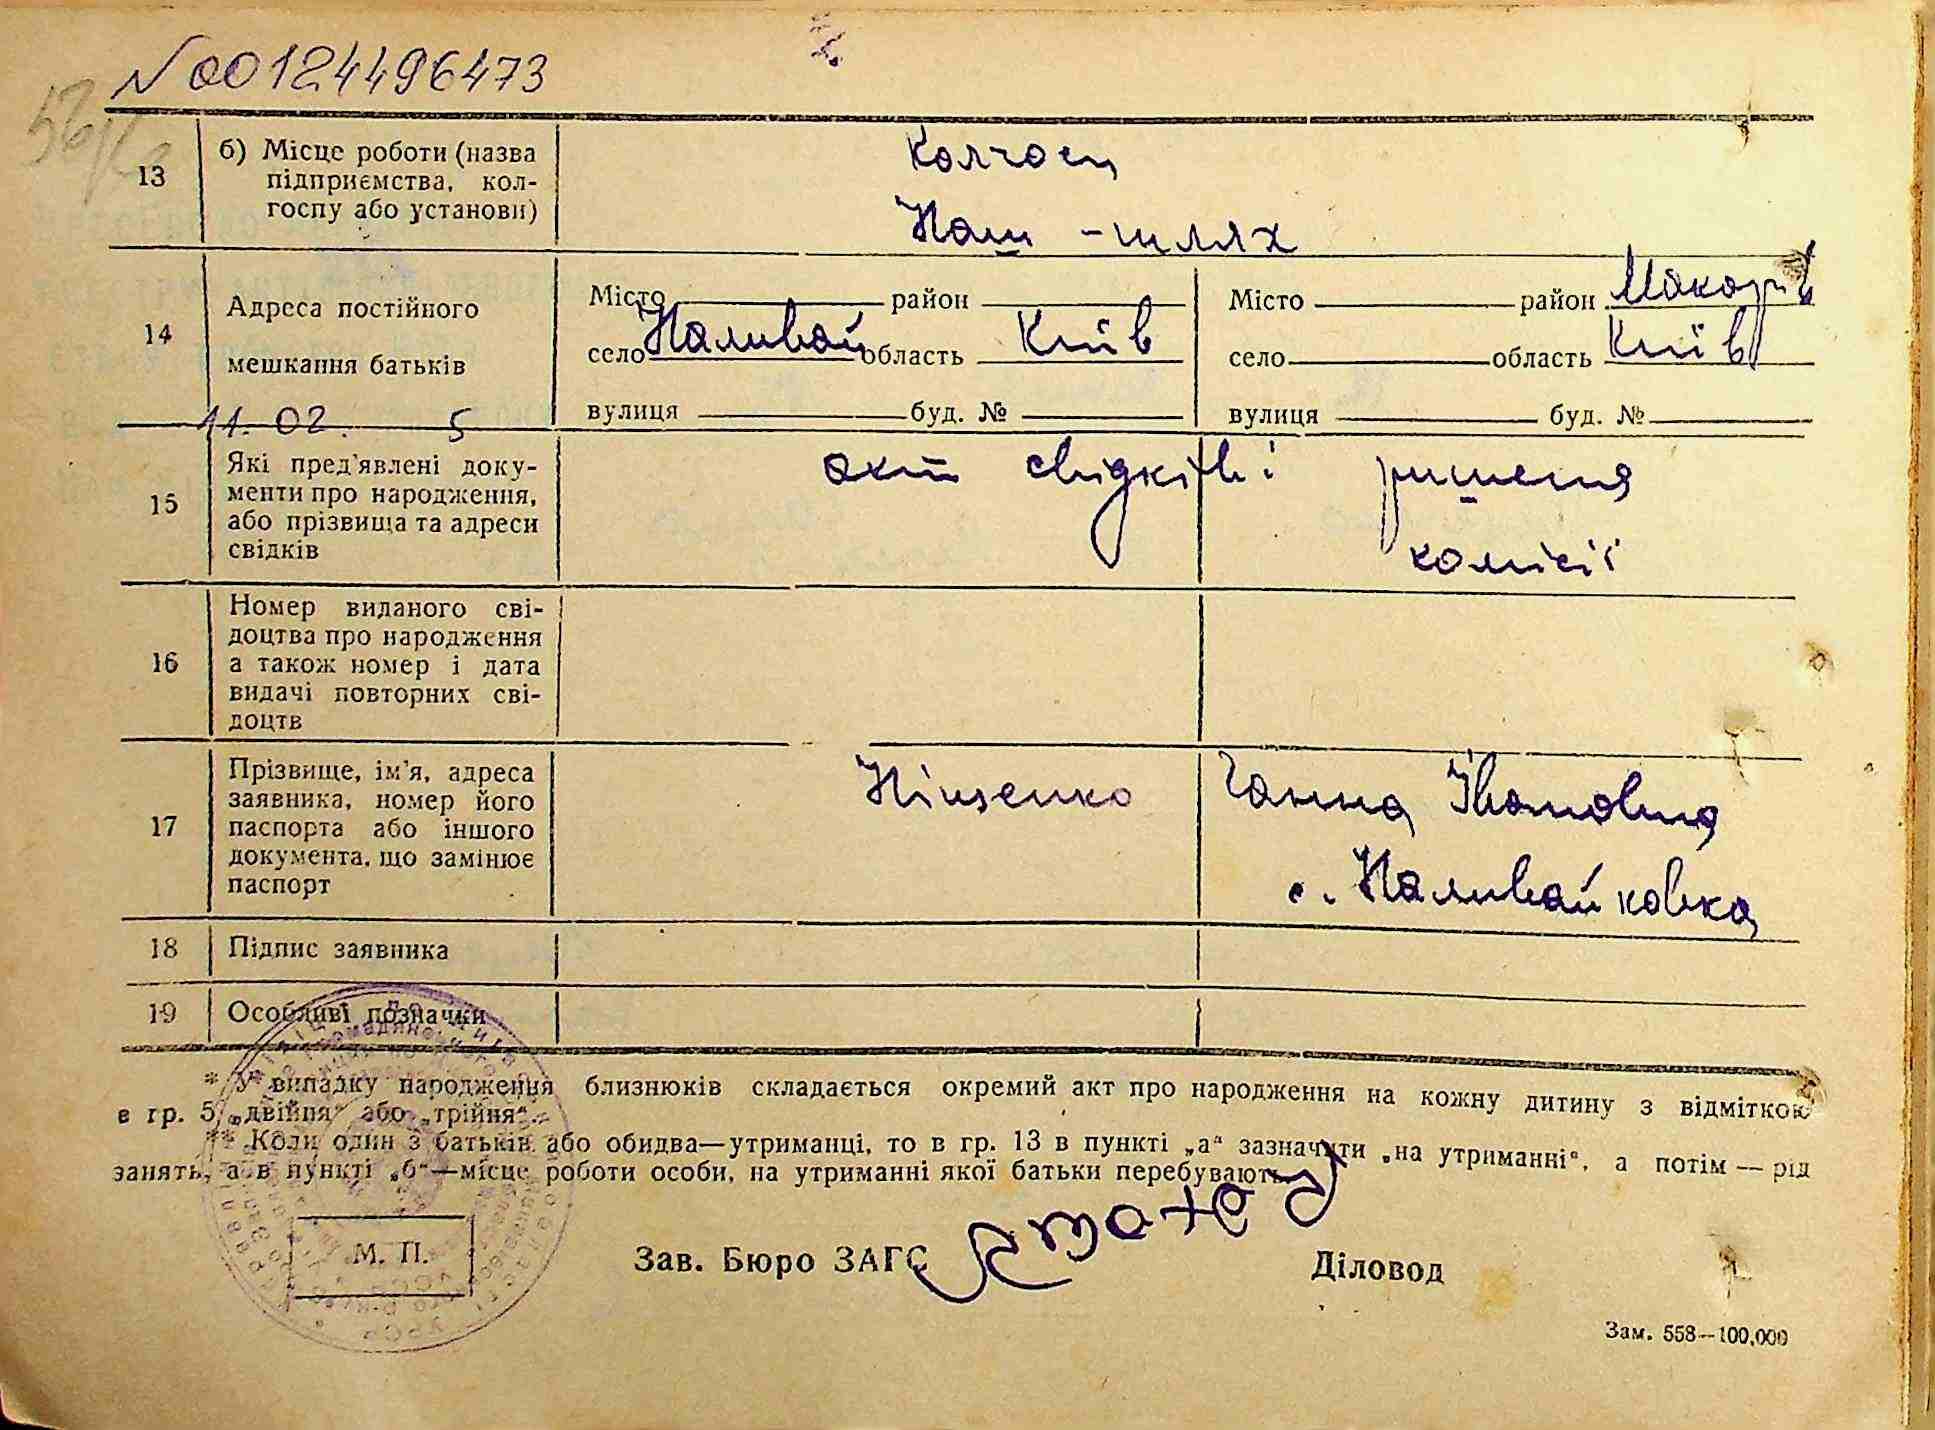 №00124496473
13 б) Місце роботи (назва
підприємства, кол-
госпу або установи)
Колгосп
Наш - шлях
14 Адреса постійного
мешкання батьків
Місто район
село Наливай область Київ
вулиця буд. №
Місто район Макарів
село область Київ
вулиця буд. №
11. 02. 5
15 Які пред'явлені доку-
менти про народження,
або прізвища та адреси
свідків
акт свідків і рішення
комісії
16 Номер виданого сві-
доцтва про народження
а також номер і дата
видачі повторних сві-
доцтв
17 Прізвище, ім'я, адреса
заявника, номер його
паспорта або іншого
документа, що замінює
паспорт
Ніщенко Ганна Івановна
с. Наливайковка
18 Підпис заявника
19 Особливі позначки
* У випадку народження близнюків складається окремий акт про народження на кожну дитину з відміткою
в гр. 5 „двійня" або „трійня".
** Коли один з батьків або обидва—утриманці, то в гр. 13 в пункті „а" зазначити „на утриманні", а потім — рід
занять, а в пункті „б"—місце роботи особи, на утриманні якої батьки перебувають.
М. П.
Зав. Бюро ЗАГС
Діловод
Зам. 558—100.000